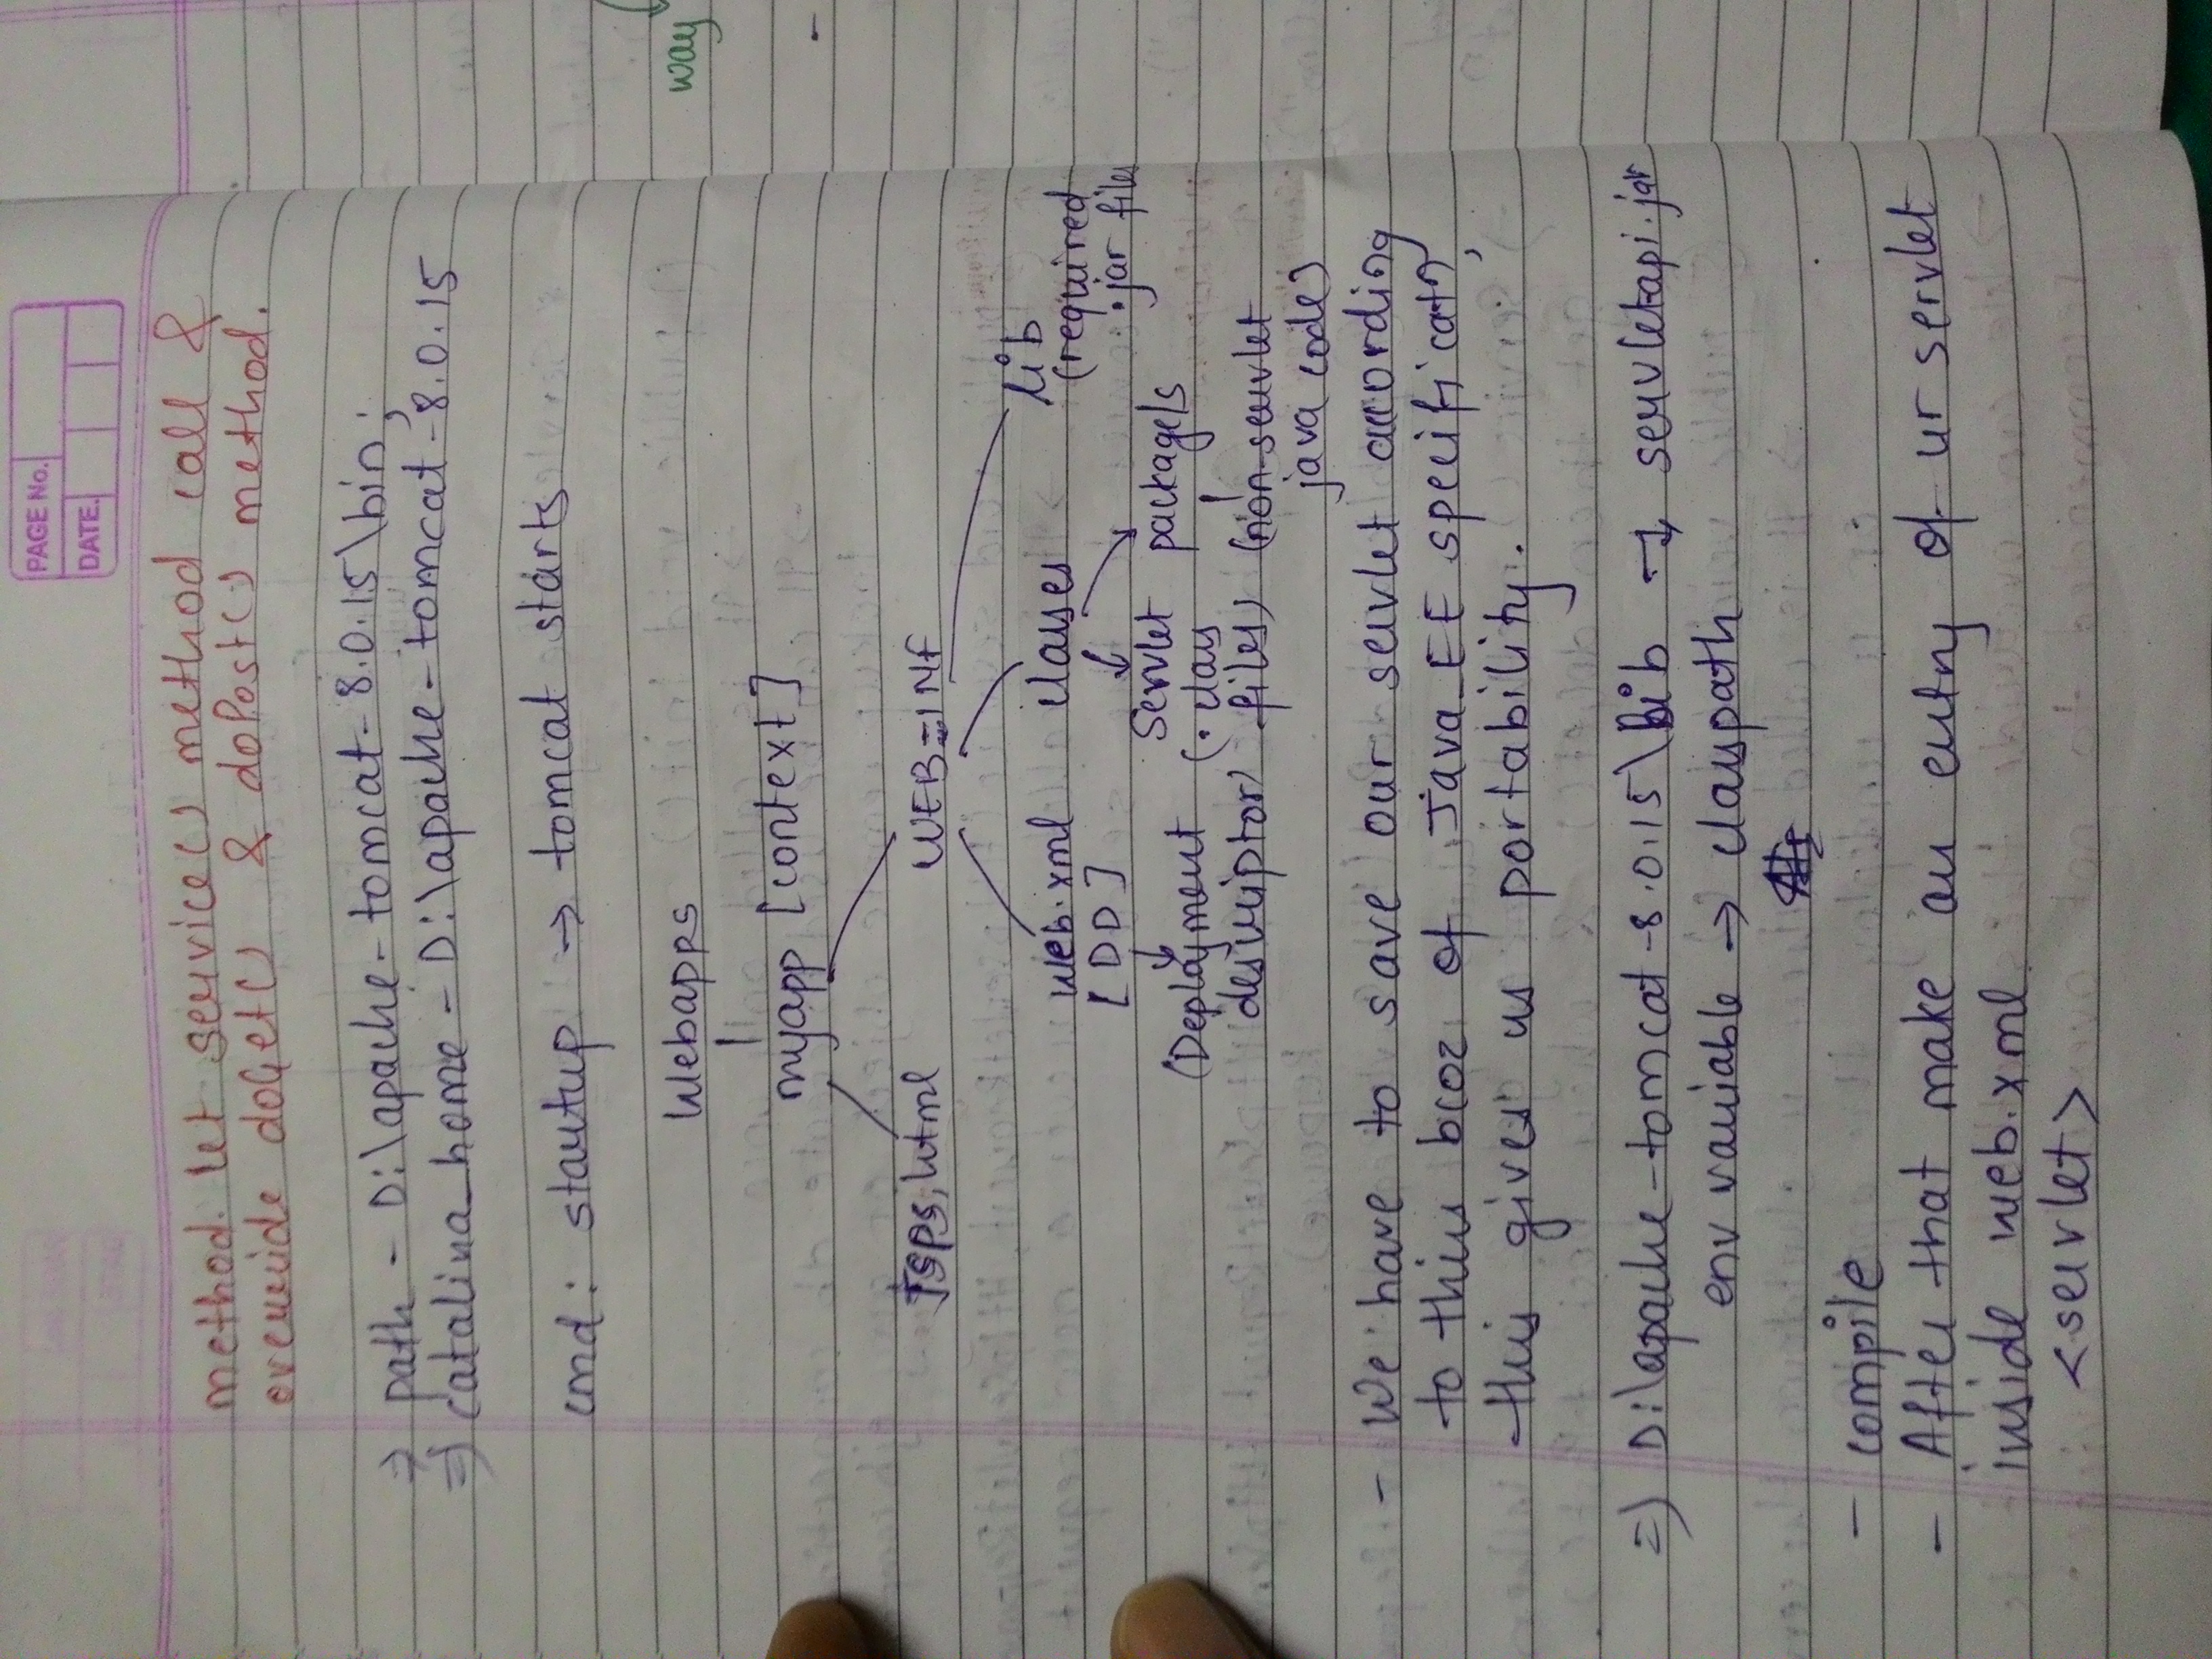 PAGE No.
DATE.
method. let service() method call &
override doGet() & doPost() method.
⇒ path - D:\apache-tomcat-8.0.15\bin;
⇒ catalina_home - D:\apache-tomcat-8.0.15
cmd: startup → tomcat starts
way
Webapps
myapp [context]
JSPs, html WEB-INF
web.xml classes lib
[DD] (required .jar files
Servlet package/s
(Deployment (.class
descriptor) files) (non-servlet
java code)
- We have to save our servlet according
to this bcoz of Java EE specificatn,
this gives us portability.
⇒ D:\apache-tomcat-8.0.15\lib → servletapi.jar
env variable → classpath
- compile
- After that make an entry of ur servlet
inside web.xml
<servlet>